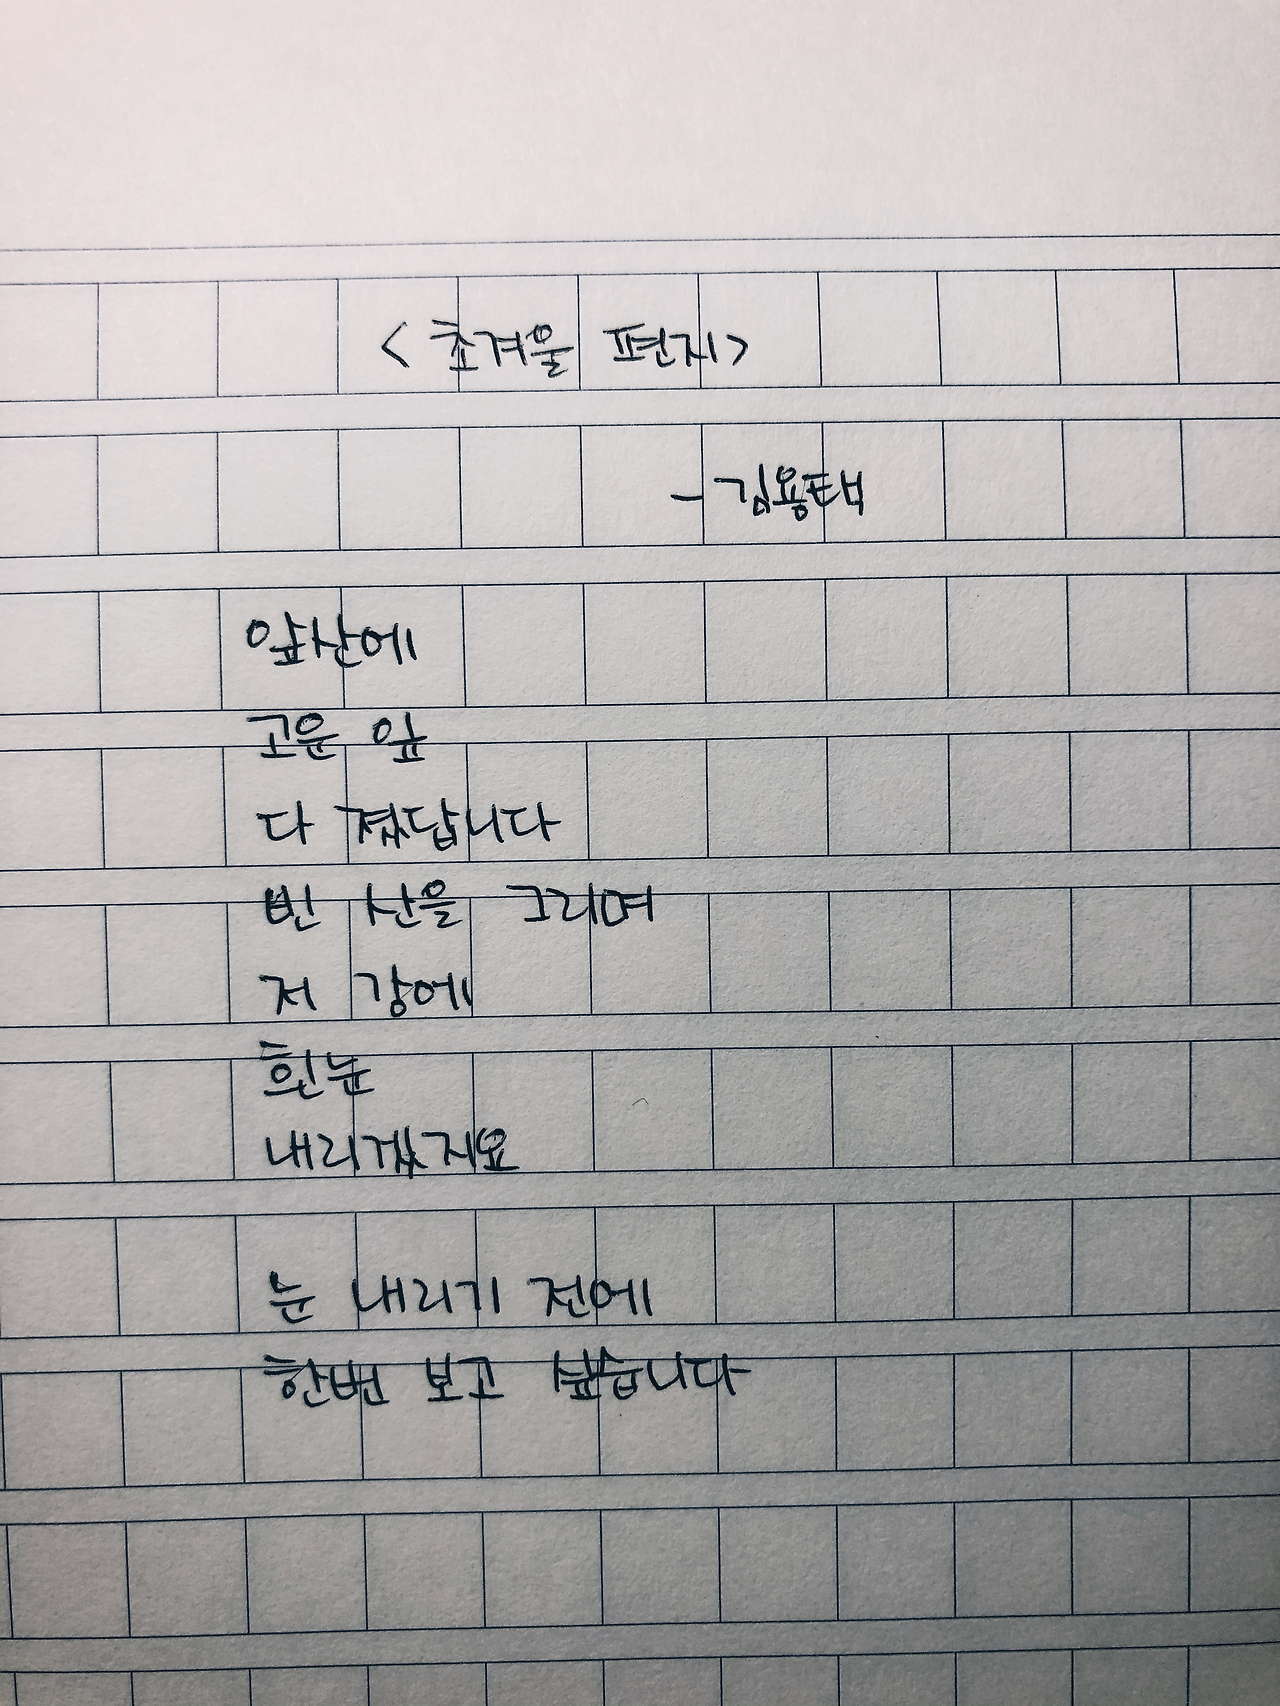 <초겨울 편지>
- 김용택
앞산에
고운 잎
다 졌답니다
빈 산을 그리며
저 강에
흰눈
내리겠지요
눈 내리기 전에
한번 보고 싶습니다